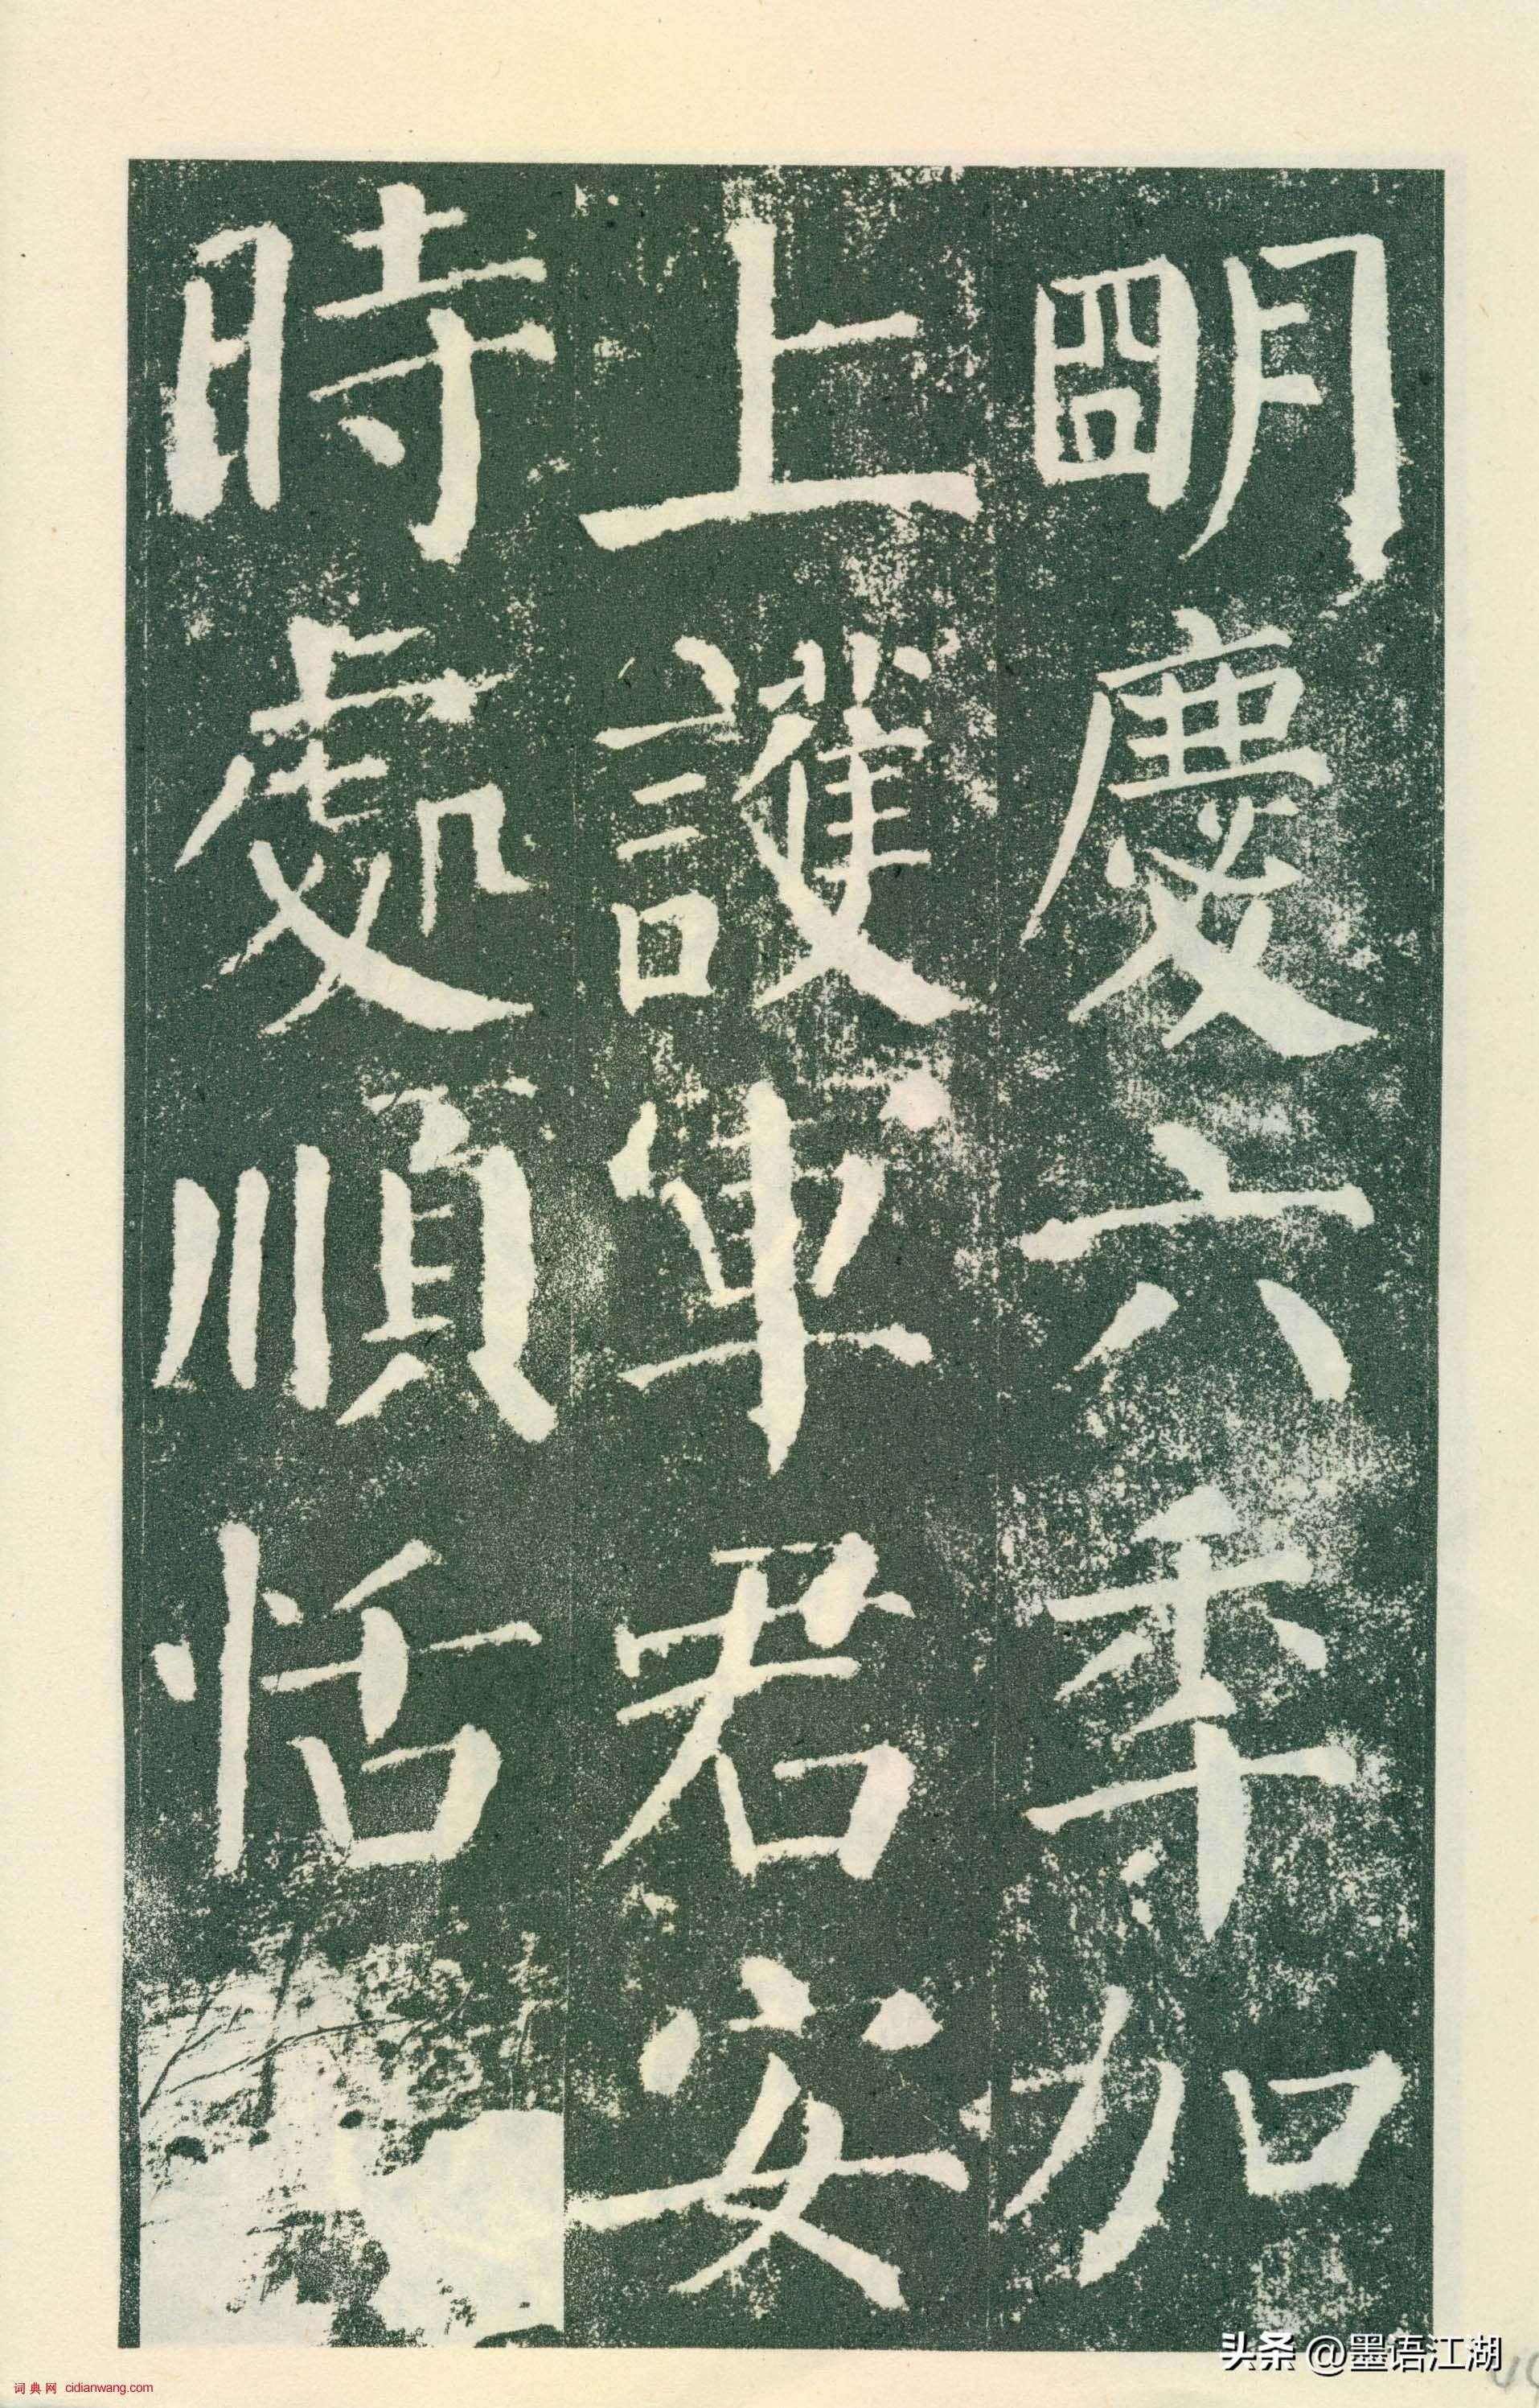 朙慶六秊加
上護軍君安
時處順恬
头条 @墨语江湖
词典网 cidianwang.com